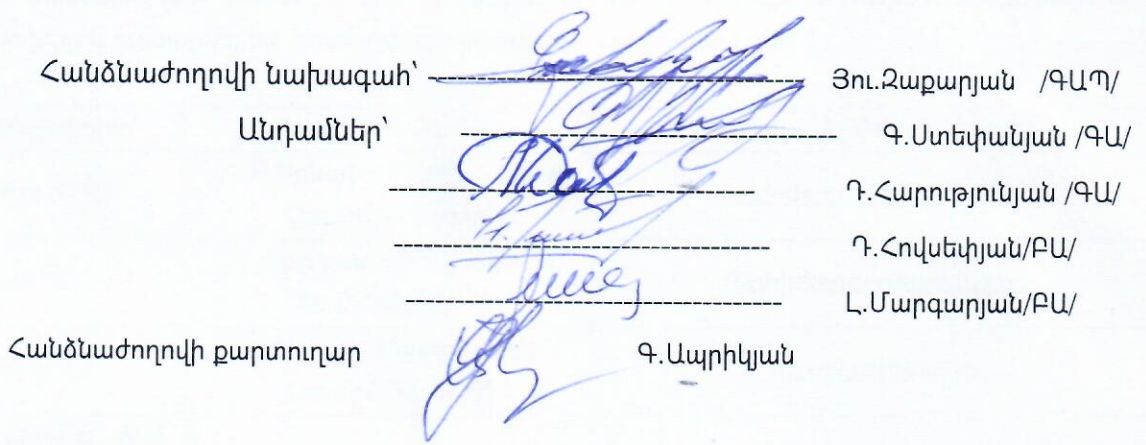 Հանձնաժողովի նախագահ՝ ---------------------------------- Յու.Զաքարյան /ԳԱՊ/
Անդամներ՝ ---------------------------------- Գ.Ստեփանյան /ԳԱ/
---------------------------------- Դ.Հարությունյան /ԳԱ/
---------------------------------- Դ.Հովսեփյան/ԲԱ/
---------------------------------- Լ.Մարգարյան/ԲԱ/
Հանձնաժողովի քարտուղար Գ.Ապրիկյան